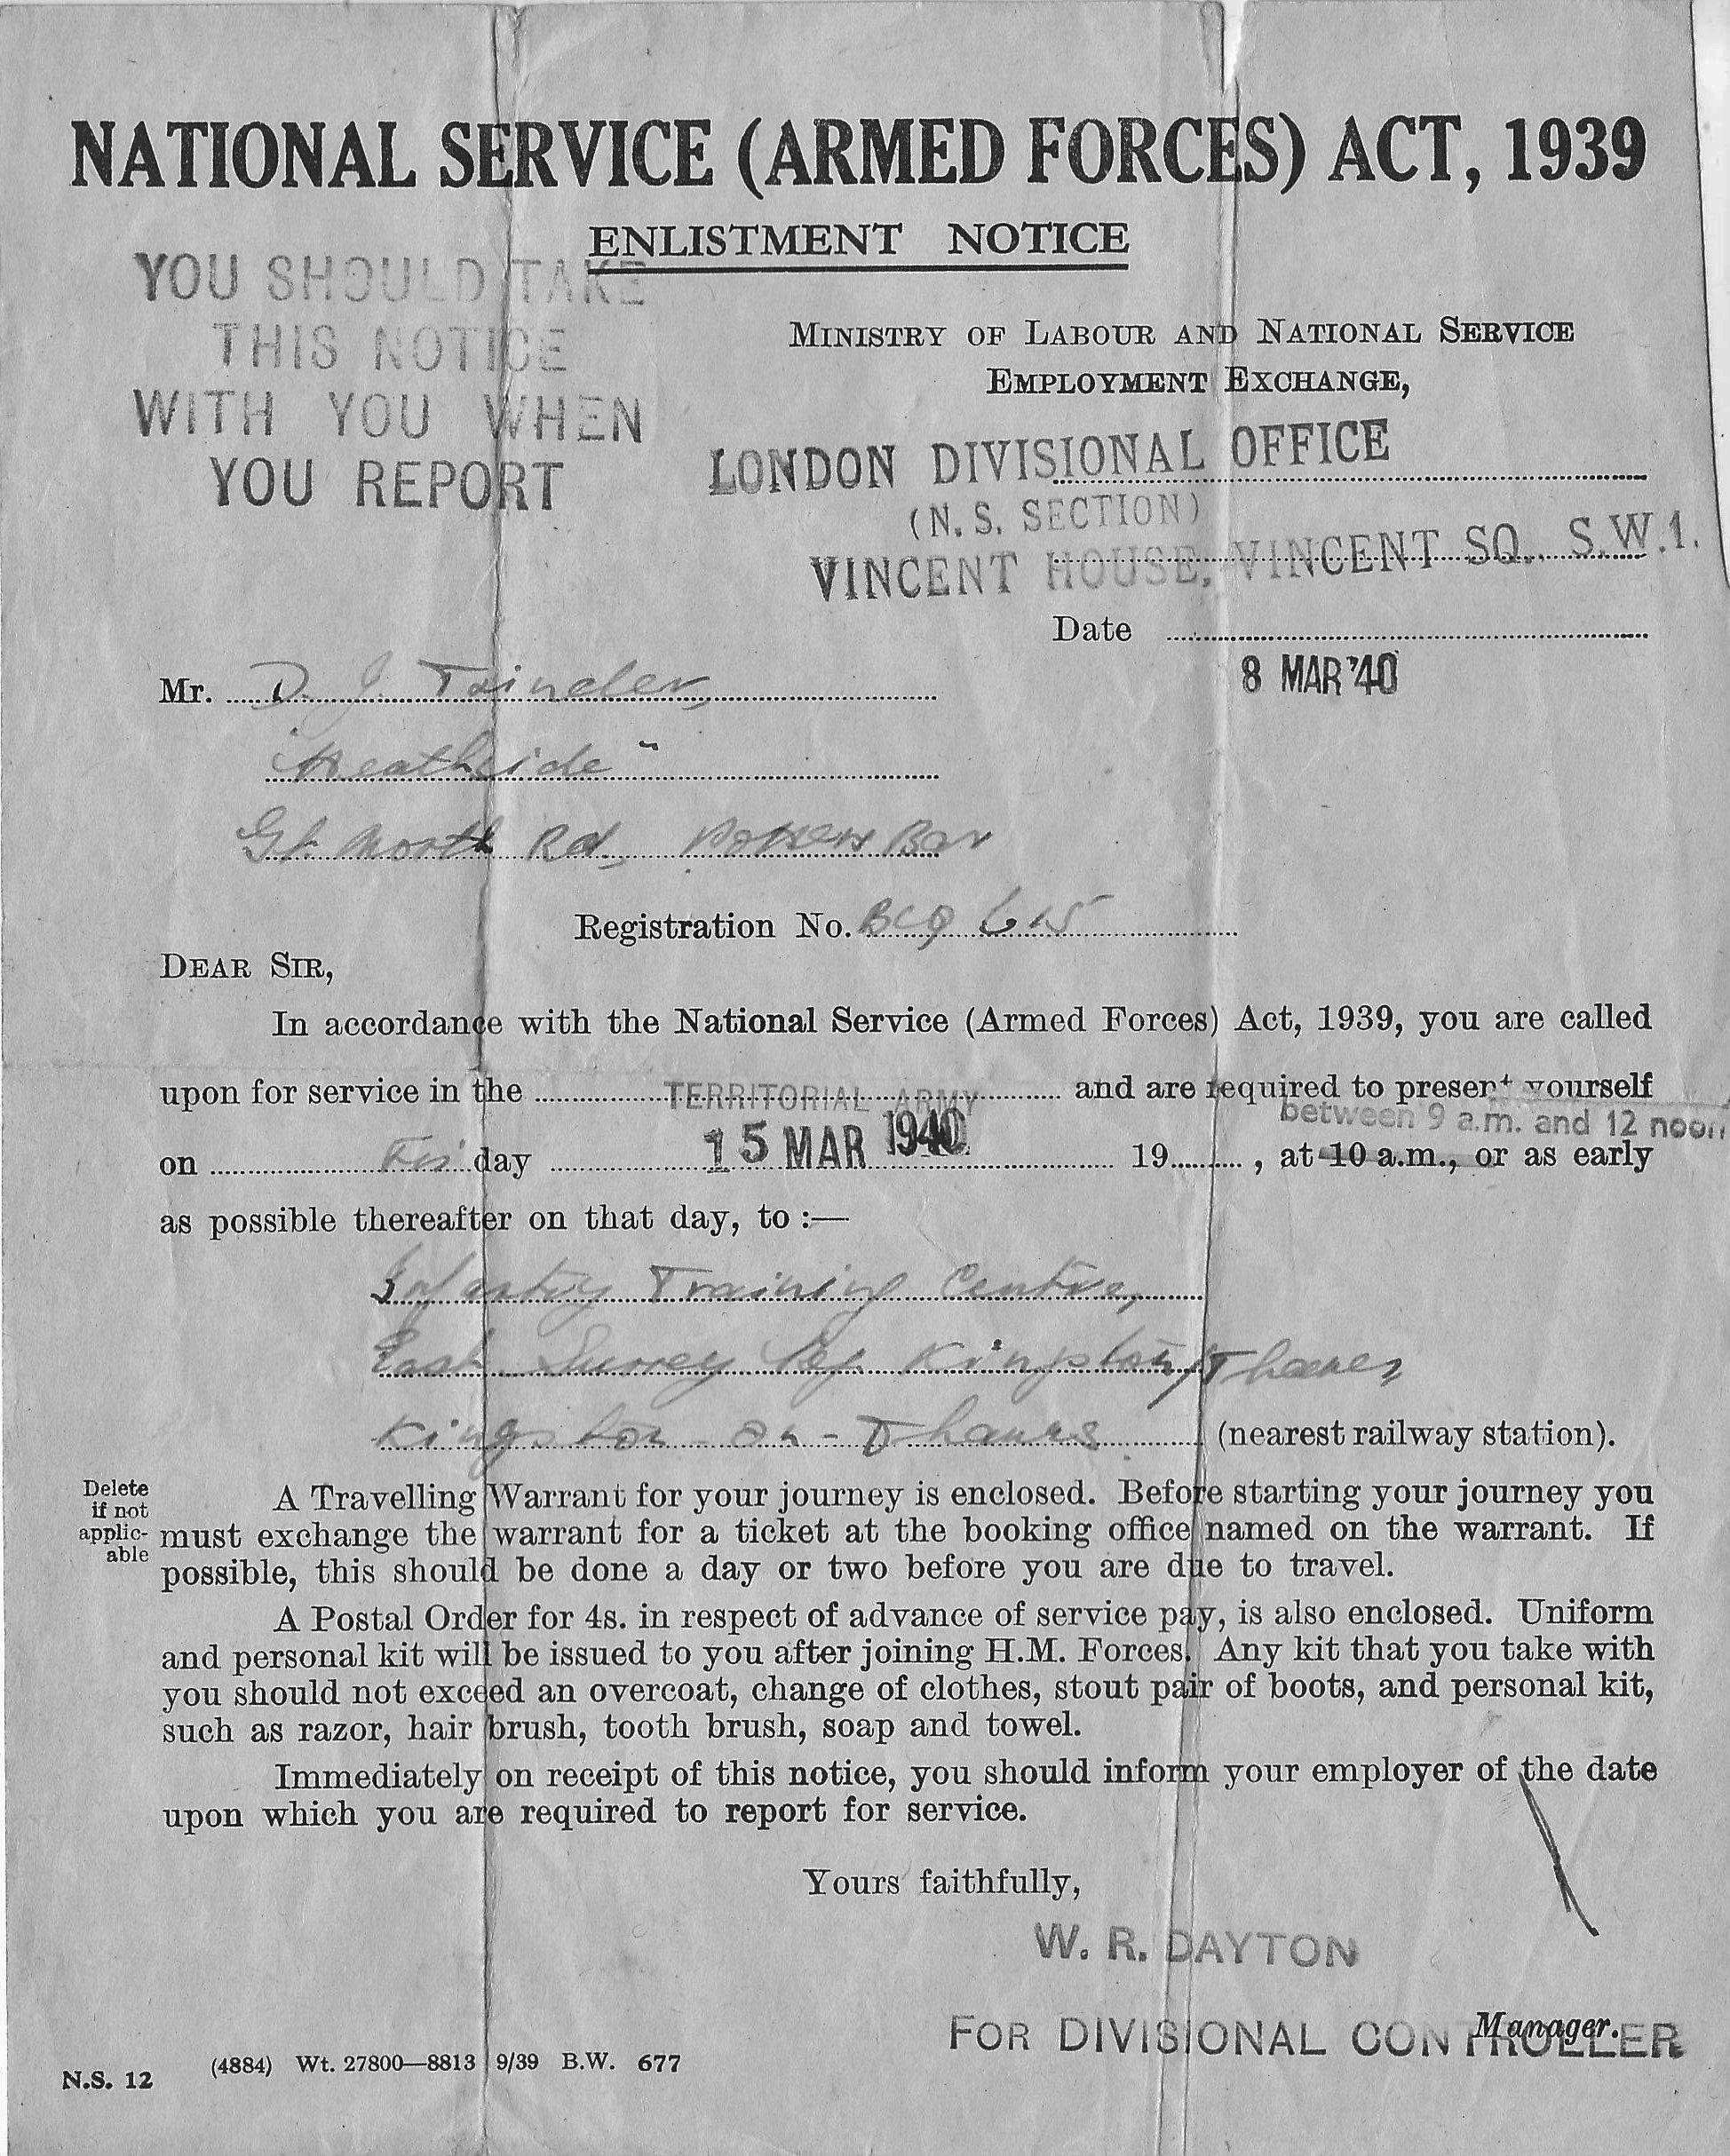 NATIONAL SERVICE (ARMED FORCES) ACT, 1939
ENLISTMENT NOTICE
YOU SHOULD TAKE
THIS NOTICE
WITH YOU WHEN
YOU REPORT
MINISTRY OF LABOUR AND NATIONAL SERVICE
EMPLOYMENT EXCHANGE,
LONDON DIVISIONAL OFFICE
(N. S. SECTION)
VINCENT HOUSE, VINCENT SQ., S.W.1.
Date
8 MAR '40
Mr. D. J.
"Heathside"
Gt. North Rd, Potters Bar
Registration No. BCQ 615
DEAR SIR,
In accordance with the National Service (Armed Forces) Act, 1939, you are called
upon for service in the TERRITORIAL ARMY and are required to present yourself
between 9 a.m. and 12 noon
on Fri day 15 MAR 1940 19 , at 10 a.m., or as early
as possible thereafter on that day, to :—
Infantry Training Centre,
East Surrey Kingston/Thames
Kingston-on-Thames (nearest railway station).
Delete
if not
applic-
able
A Travelling Warrant for your journey is enclosed. Before starting your journey you
must exchange the warrant for a ticket at the booking office named on the warrant. If
possible, this should be done a day or two before you are due to travel.
A Postal Order for 4s. in respect of advance of service pay, is also enclosed. Uniform
and personal kit will be issued to you after joining H.M. Forces. Any kit that you take with
you should not exceed an overcoat, change of clothes, stout pair of boots, and personal kit,
such as razor, hair brush, tooth brush, soap and towel.
Immediately on receipt of this notice, you should inform your employer of the date
upon which you are required to report for service.
Yours faithfully,
W. R. DAYTON
Manager.
FOR DIVISIONAL CONTROLLER
N.S. 12 (4884) Wt. 27800—8813 9/39 B.W. 677